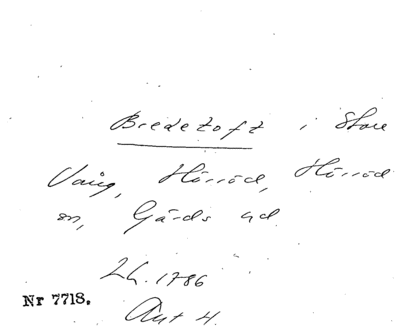 Bredetoft i Store
Vång, Hörröd, Hörröd
sn, Gärds hd.
Lh. 1786
Nr 7718.
Akt 4.